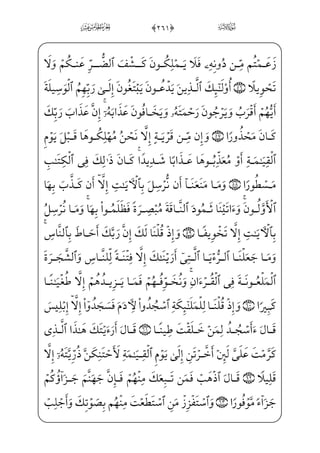 ﴿٢٦١﴾
زَعَمْتُم مِّن دُونِهِۦ فَلَا يَمْلِكُونَ كَشْفَ ٱلضُّرِّ عَنكُمْ وَلَا
تَحْوِيلًا ۝ أُو۟لَٰٓئِكَ ٱلَّذِينَ يَدْعُونَ يَبْتَغُونَ إِلَىٰ رَبِّهِمُ ٱلْوَسِيلَةَ
أَيُّهُمْ أَقْرَبُ وَيَرْجُونَ رَحْمَتَهُۥ وَيَخَافُونَ عَذَابَهُۥٓ إِنَّ عَذَابَ رَبِّكَ
كَانَ مَحْذُورًا ۝ وَإِن مِّن قَرْيَةٍ إِلَّا نَحْنُ مُهْلِكُوهَا قَبْلَ يَوْمِ
ٱلْقِيَٰمَةِ أَوْ مُعَذِّبُوهَا عَذَابًا شَدِيدًا كَانَ ذَٰلِكَ فِى ٱلْكِتَٰبِ
مَسْطُورًا ۝ وَمَا مَنَعَنَآ أَن نُّرْسِلَ بِٱلْءَايَٰتِ إِلَّآ أَن كَذَّبَ بِهَا
ٱلْأَوَّلُونَ وَءَاتَيْنَا ثَمُودَ ٱلنَّاقَةَ مُبْصِرَةً فَظَلَمُوا۟ بِهَا وَمَا نُرْسِلُ
بِٱلْءَايَٰتِ إِلَّا تَخْوِيفًا ۝ وَإِذْ قُلْنَا لَكَ إِنَّ رَبَّكَ أَحَاطَ بِٱلنَّاسِ
وَمَا جَعَلْنَا ٱلرُّءْيَا ٱلَّتِىٓ أَرَيْنَٰكَ إِلَّا فِتْنَةً لِّلنَّاسِ وَٱلشَّجَرَةَ
ٱلْمَلْعُونَةَ فِى ٱلْقُرْءَانِ وَنُخَوِّفُهُمْ فَمَا يَزِيدُهُمْ إِلَّا طُغْيَٰنًا
كَبِيرًا ۝ وَإِذْ قُلْنَا لِلْمَلَٰٓئِكَةِ ٱسْجُدُوا۟ لِءَادَمَ فَسَجَدُوٓا۟ إِلَّآ إِبْلِيسَ
قَالَ ءَأَسْجُدُ لِمَنْ خَلَقْتَ طِينًا ۝ قَالَ أَرَءَيْتَكَ هَٰذَا ٱلَّذِى
كَرَّمْتَ عَلَىَّ لَئِنْ أَخَّرْتَنِ إِلَىٰ يَوْمِ ٱلْقِيَٰمَةِ لَأَحْتَنِكَنَّ ذُرِّيَّتَهُۥٓ إِلَّا
قَلِيلًا ۝ قَالَ ٱذْهَبْ فَمَن تَبِعَكَ مِنْهُمْ فَإِنَّ جَهَنَّمَ جَزَآؤُكُمْ
جَزَآءً مَّوْفُورًا ۝ وَٱسْتَفْزِزْ مَنِ ٱسْتَطَعْتَ مِنْهُم بِصَوْتِكَ وَأَجْلِبْ